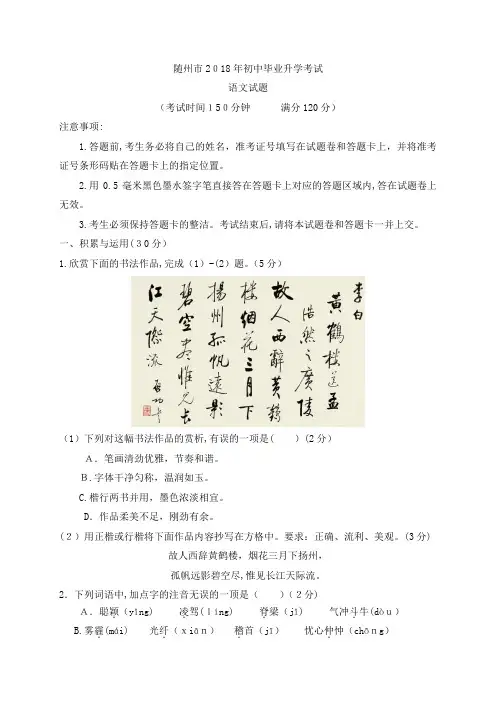 随州市2018年初中毕业升学考试
语文试题
（考试时间150分钟　　满分120分）
注意事项:
1.答题前,考生务必将自己的姓名，准考证号填写在试题卷和答题卡上，并将准考
证号条形码贴在答题卡上的指定位置。
2.用0.5毫米黑色墨水签字笔直接答在答题卡上对应的答题区域内,答在试题卷上
无效。
3.考生必须保持答题卡的整洁。考试结束后,请将本试题卷和答题卡一并上交。
一、积累与运用(30分）
1.欣赏下面的书法作品,完成（1）-(2）题。（5分）
李白
黄鶴樓送孟
浩然之廣陵
故人西辭黄鶴
樓烟花三月下
揚州孤帆遠影
碧空盡惟見長
江天際流 启功
（1）下列对这幅书法作品的赏析,有误的一项是(　　）(2分）
A．笔画清劲优雅，节奏和谐。
B.字体干净匀称，温润如玉。
C.楷行两书并用，墨色浓淡相宜。
D．作品柔美不足，刚劲有余。
(２）用正楷或行楷将下面作品内容抄写在方格中。要求：正确、流利、美观。(3分)
故人西辞黄鹤楼，烟花三月下扬州，
孤帆远影碧空尽,惟见长江天际流。
2．下列词语中,加点字的注音无误的一项是（　　）（２分)
A．聪颖（yǐng) 凌驾(líng) 脊梁（jī） 气冲斗牛(dòu）
B.雾霾(mái) 光纤（xiān） 稽首（jī） 忧心忡忡（chōng）